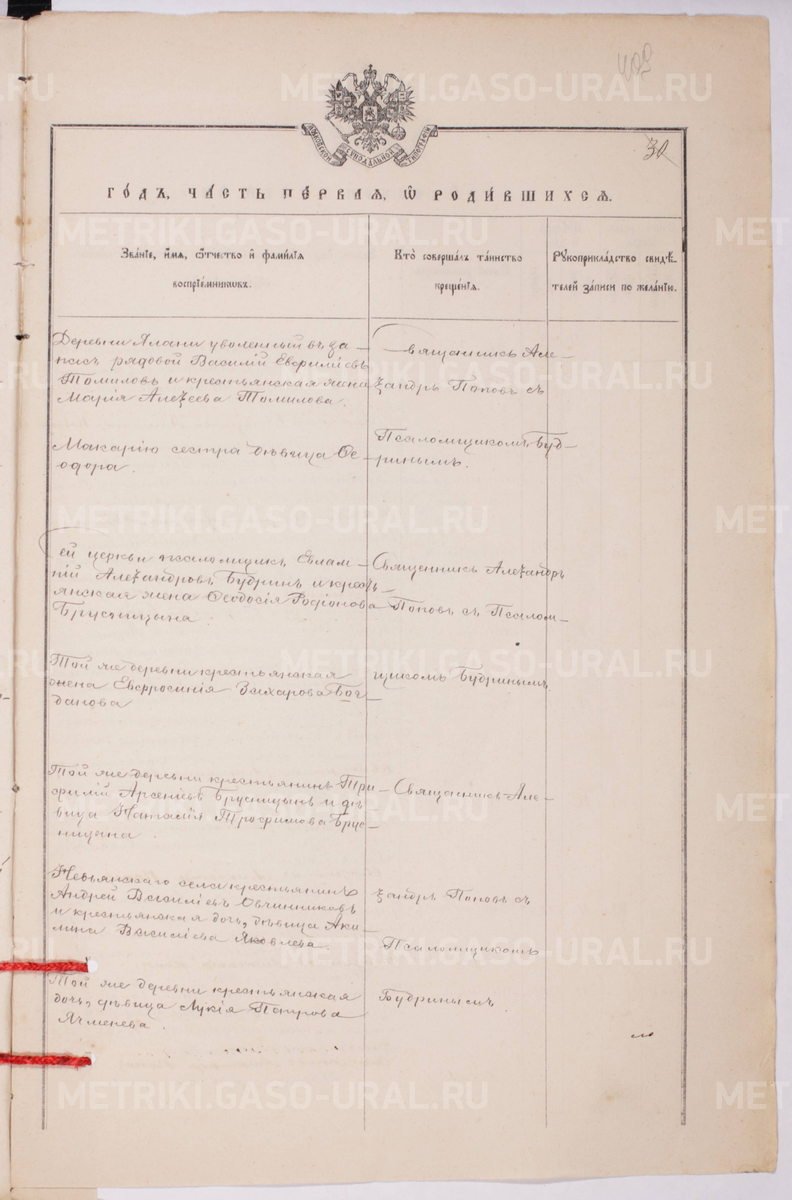 METRIKI.GASO-URAL.RU
409
30
МОСКОВСКОЙ СѴНОДАЛЬНОЙ ТИПОГРАФІИ
ГО́ДЪ, ЧА́СТЬ ПЕ́РВАѦ, Ѡ҆ РОДИ́ВШИХСѦ.
Зва́нїе, и҆́мѧ, ѻ҆́тчество и҆ фами́лїѧ
воспрїе́мниковъ.
Кто̀ соверша́лъ та́инство
креще́нїѧ.
Рꙋкоприкла́дство свидѣ́-
телей за́писи по жела́нїю.
Деревни Ялани уволенный въ за-
пасъ рядовой Василій Евфиміевъ
Томиловъ и крестьянская жена
Марія Алексѣева Томилова.
Священникъ Але-
ѯандръ Поповъ съ
Макарію сестра дѣвица Ѳе-
одора.
Псаломщикомъ Буд-
ринымъ.
Сей церкви псаломщикъ Евлам-
пій Алеѯандровъ Будринъ и кресть-
янская жена Ѳеодосія Родіонова
Брусницына.
Священникъ Алеѯандръ
Поповъ съ Псалом-
Той же деревни крестьянская
жена Евфросинія Захарова Бог-
данова
щикомъ Будринымъ
Той же деревни крестьянинъ Тро-
фимій Арсеніевъ Брусницынъ и дѣ-
вица Наталія Трофимова Брус-
ницына.
Священникъ Але-
Невьянскаго села крестьянинъ
Андрей Василіевъ Овчинниковъ
и крестьянская дочь, дѣвица Аки-
лина Василіева Яковлева.
ѯандръ Поповъ съ
Псаломщикомъ
Той же деревни крестьянская
дочь, дѣвица Лукія Петрова
Ячменева.
Будринымъ